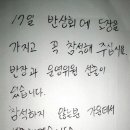 17일 반상회때 도장을
가지고 꼭 참석해 주십시요.
반장과 운영위원 선출이
있습니다.
참석하지 않는분 가운데서